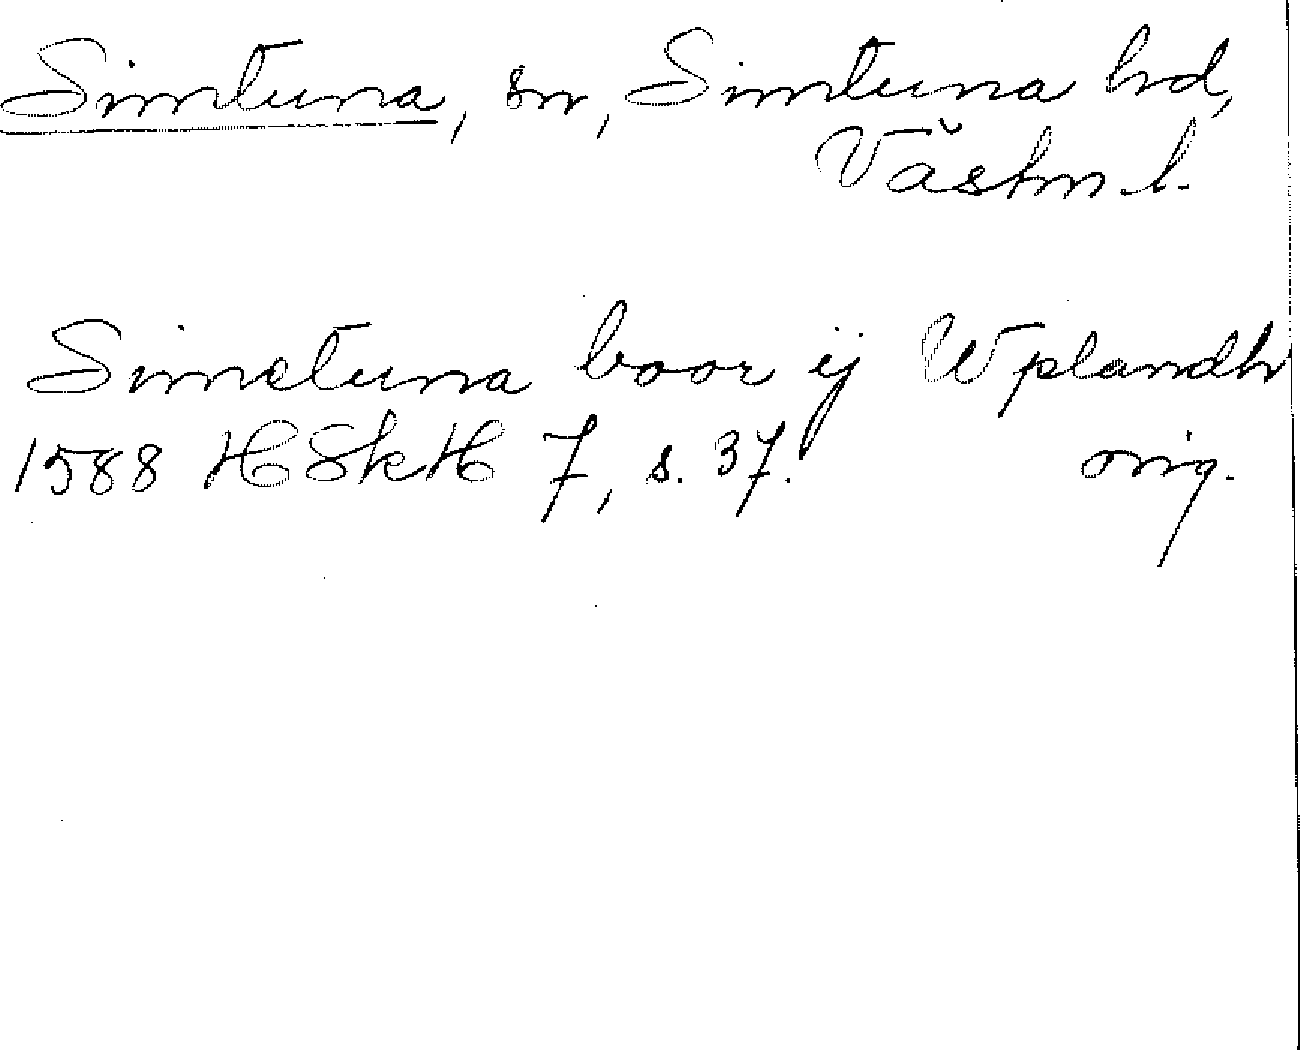 Simtuna, sn, Simtuna hd,
Västm. l.
Simetuna boor ij Wplandh
1588 HSkH 7, s. 37. orig.